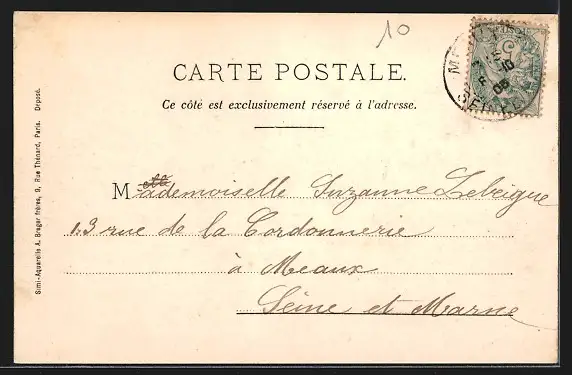 10
CARTE POSTALE.
Ce côté est exclusivement réservé à l'adresse.
Mademoiselle Suzanne Lebeigue
13 rue de la Cordonnerie
à Meaux
Seine et Marne
Simi-Aquarelle A. Breger frères, 9, Rue Thénard, Paris. Déposé.